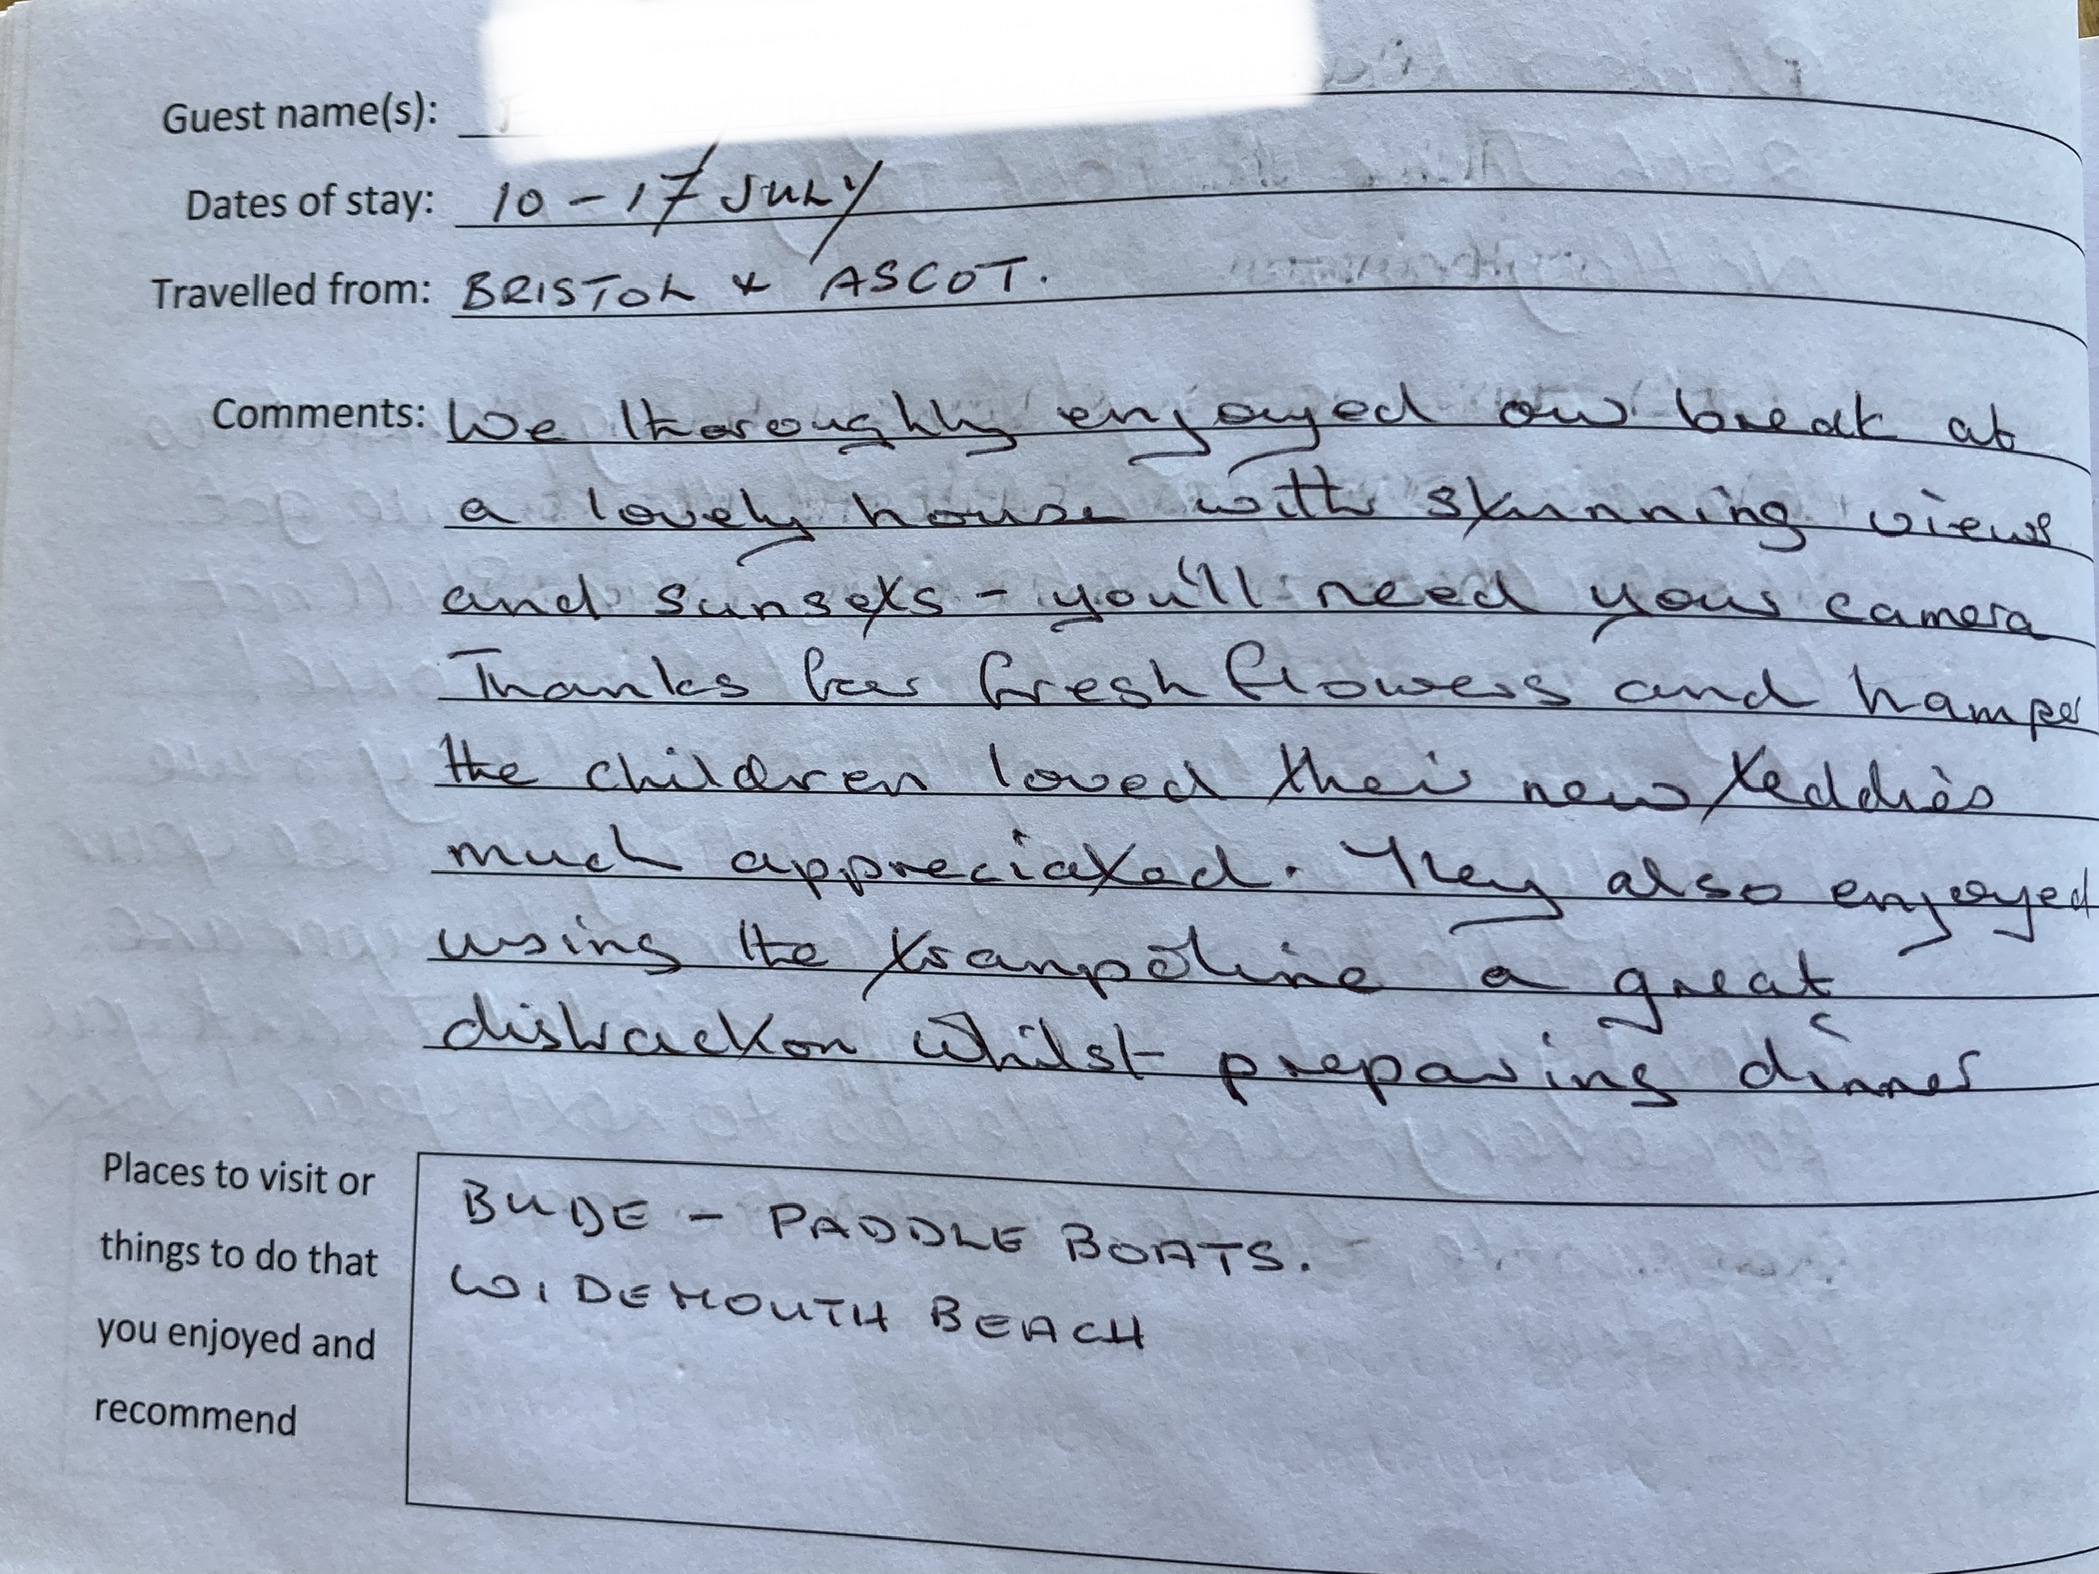 Guest name(s):
Dates of stay: 10 - 17 JULY
Travelled from: BRISTOL & ASCOT.
Comments: We thoroughly enjoyed our break at
a lovely house with stunning views
and sunsets - you'll need your camera
Thanks for fresh flowers and hamper
the children loved their new teddies
much appreciated. They also enjoyed
using the trampoline a great
distraction whilst preparing dinner
Places to visit or
things to do that
you enjoyed and
recommend
BUDE - PADDLE BOATS.
WIDEMOUTH BEACH